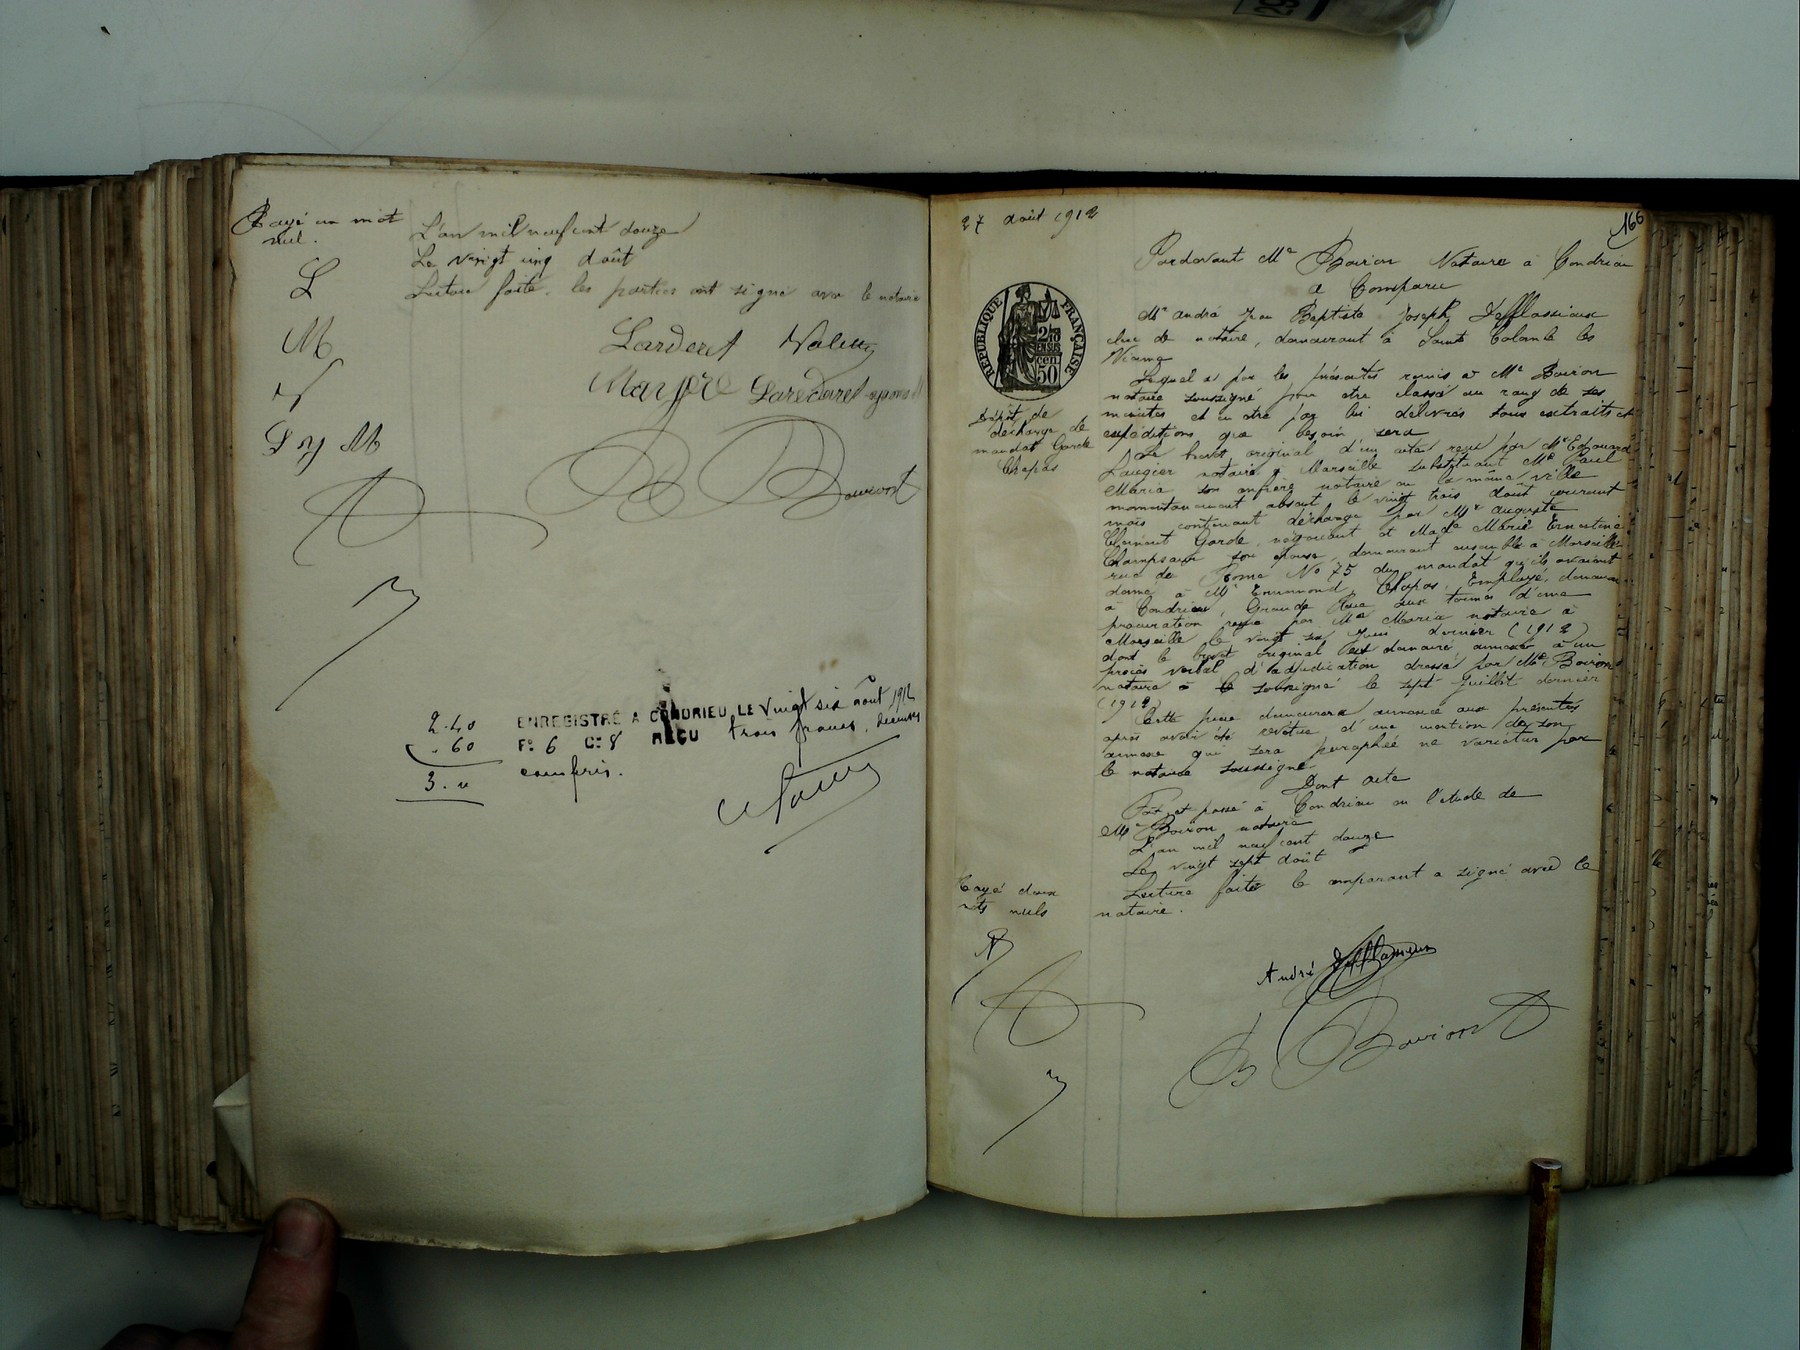 Rayé un mot
nul.
L'an mil neuf cent douze
Le vingt cinq août
Lecture faite, les parties ont signé avec le notaire
L
M
V
L y M
Larderet Valluy
Mayère Larderet
Bouiron
2.40
.60
3. "
ENREGISTRÉ A CONDRIEU, LE vingt six août 1912
F° 6 C° 8 REÇU trois francs, décimes
compris.
27 août 1912
166
Pardevant Me Boiron Notaire à Condrieu
a Comparu
Mr André Jean Baptiste Joseph Defflassieux
clerc de notaire, demeurant à Sainte Colombe les
Vienne
Lequel a par les présentes remis à Me Boiron
notaire soussigné pour être classé au rang de ses
minutes et en être par lui délivrés tous extraits et
expéditions que besoin sera
Le brevet original d'un acte reçu par Me Edouard
Laugier notaire à Marseille substituant Me Paul
Maria son confrère notaire en la même ville
momentanément absent le vingt trois août courant
mois contenant décharge par Mr Auguste
Clément Garde, négociant et Made Marie Ernestine
Champsaur son épouse, demeurant ensemble à Marseille
rue de Rome No 75 du mandat qu'ils avaient
donné à Mr Chapas, Employé, demeurant
à Condrieu, Grande Rue aux termes d'une
procuration reçue par Me Maria notaire à
Marseille le vingt six Juin dernier (1912)
dont le brevet original est demeuré annexé à un
procès verbal d'adjudication dressé par Me Boiron
notaire à le soussigné le sept Juillet dernier
(1912)
Cette pièce demeurera annexée aux présentes
après avoir été revêtue d'une mention de son
annexe qui sera paraphée ne varietur par
le notaire soussigné.
Dont acte
Fait et passé à Condrieu en l'étude de
Me Boiron notaire
L'an mil neuf cent douze
Le vingt sept août
Lecture faite le comparant a signé avec le
notaire.
RÉPUBLIQUE FRANÇAISE
2/10
EN SUS
cen
50
Dépôt de
décharge de
mandat Garde
Chapas
Rayé deux
mots nuls
André Defflassieux
Bouiron